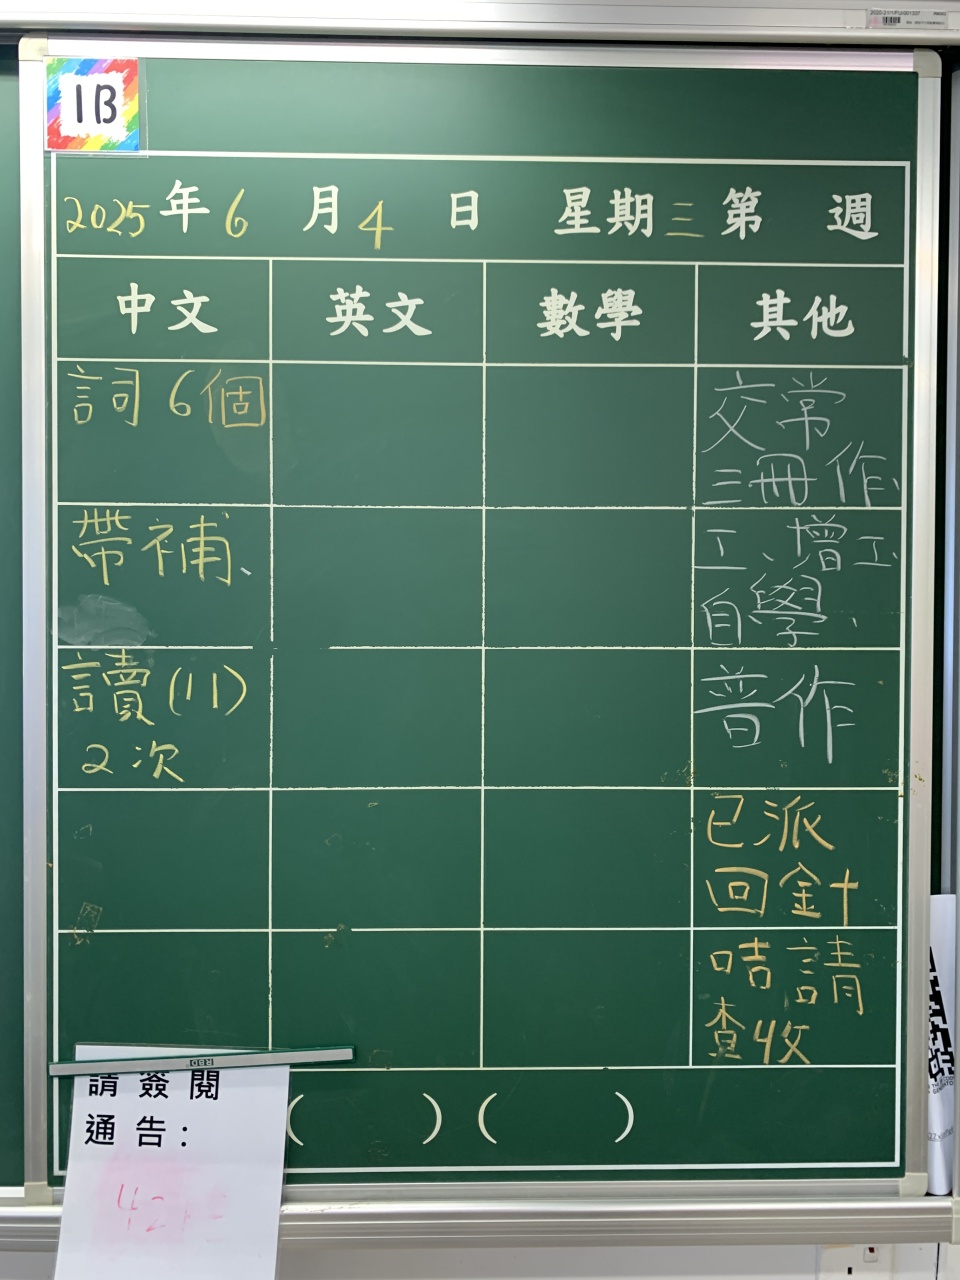 1B
2025年6月4日 星期三 第 週
中文 英文 數學 其他
詞6個
帶補、
讀(11)
2次
交常
三冊作、
工、增工、
自學、
普作
已派
回針
咭請
查收
( ) ( )
RBD
請簽閱
通告: